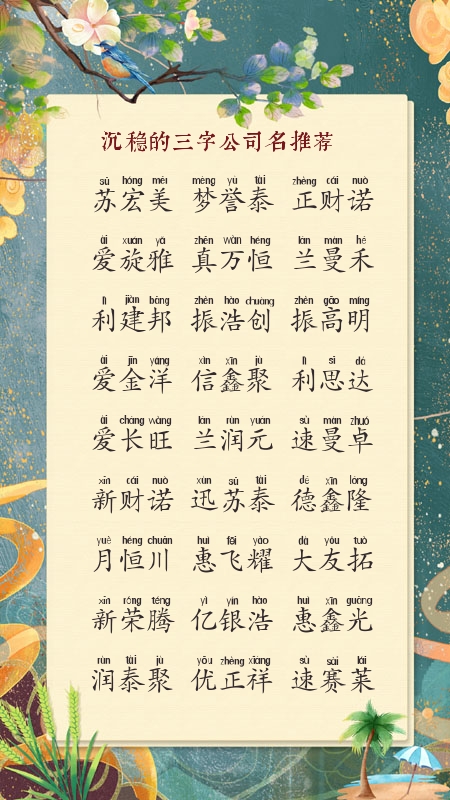 沉稳的三字公司名推荐
sū hóng měi mèng yù tài zhèng cái nuò
苏宏美 梦誉泰 正财诺
ài xuán yǎ zhēn wàn héng lán màn hé
爱旋雅 真万恒 兰曼禾
lì jiàn bāng zhèn hào chuàng zhèn gāo míng
利建邦 振浩创 振高明
ài jīn yáng xìn xīn jù lì sī dá
爱金洋 信鑫聚 利思达
ài cháng wàng lán rùn yuán sù màn zhuó
爱长旺 兰润元 速曼卓
xīn cái nuò xùn sū tài dé xīn lóng
新财诺 迅苏泰 德鑫隆
yuè héng chuān huì fēi yào dà yǒu tuò
月恒川 惠飞耀 大友拓
xīn róng téng yì yín hào huì xīn guāng
新荣腾 亿银浩 惠鑫光
rùn tài jù yōu zhèng xiáng sù sài lái
润泰聚 优正祥 速赛莱